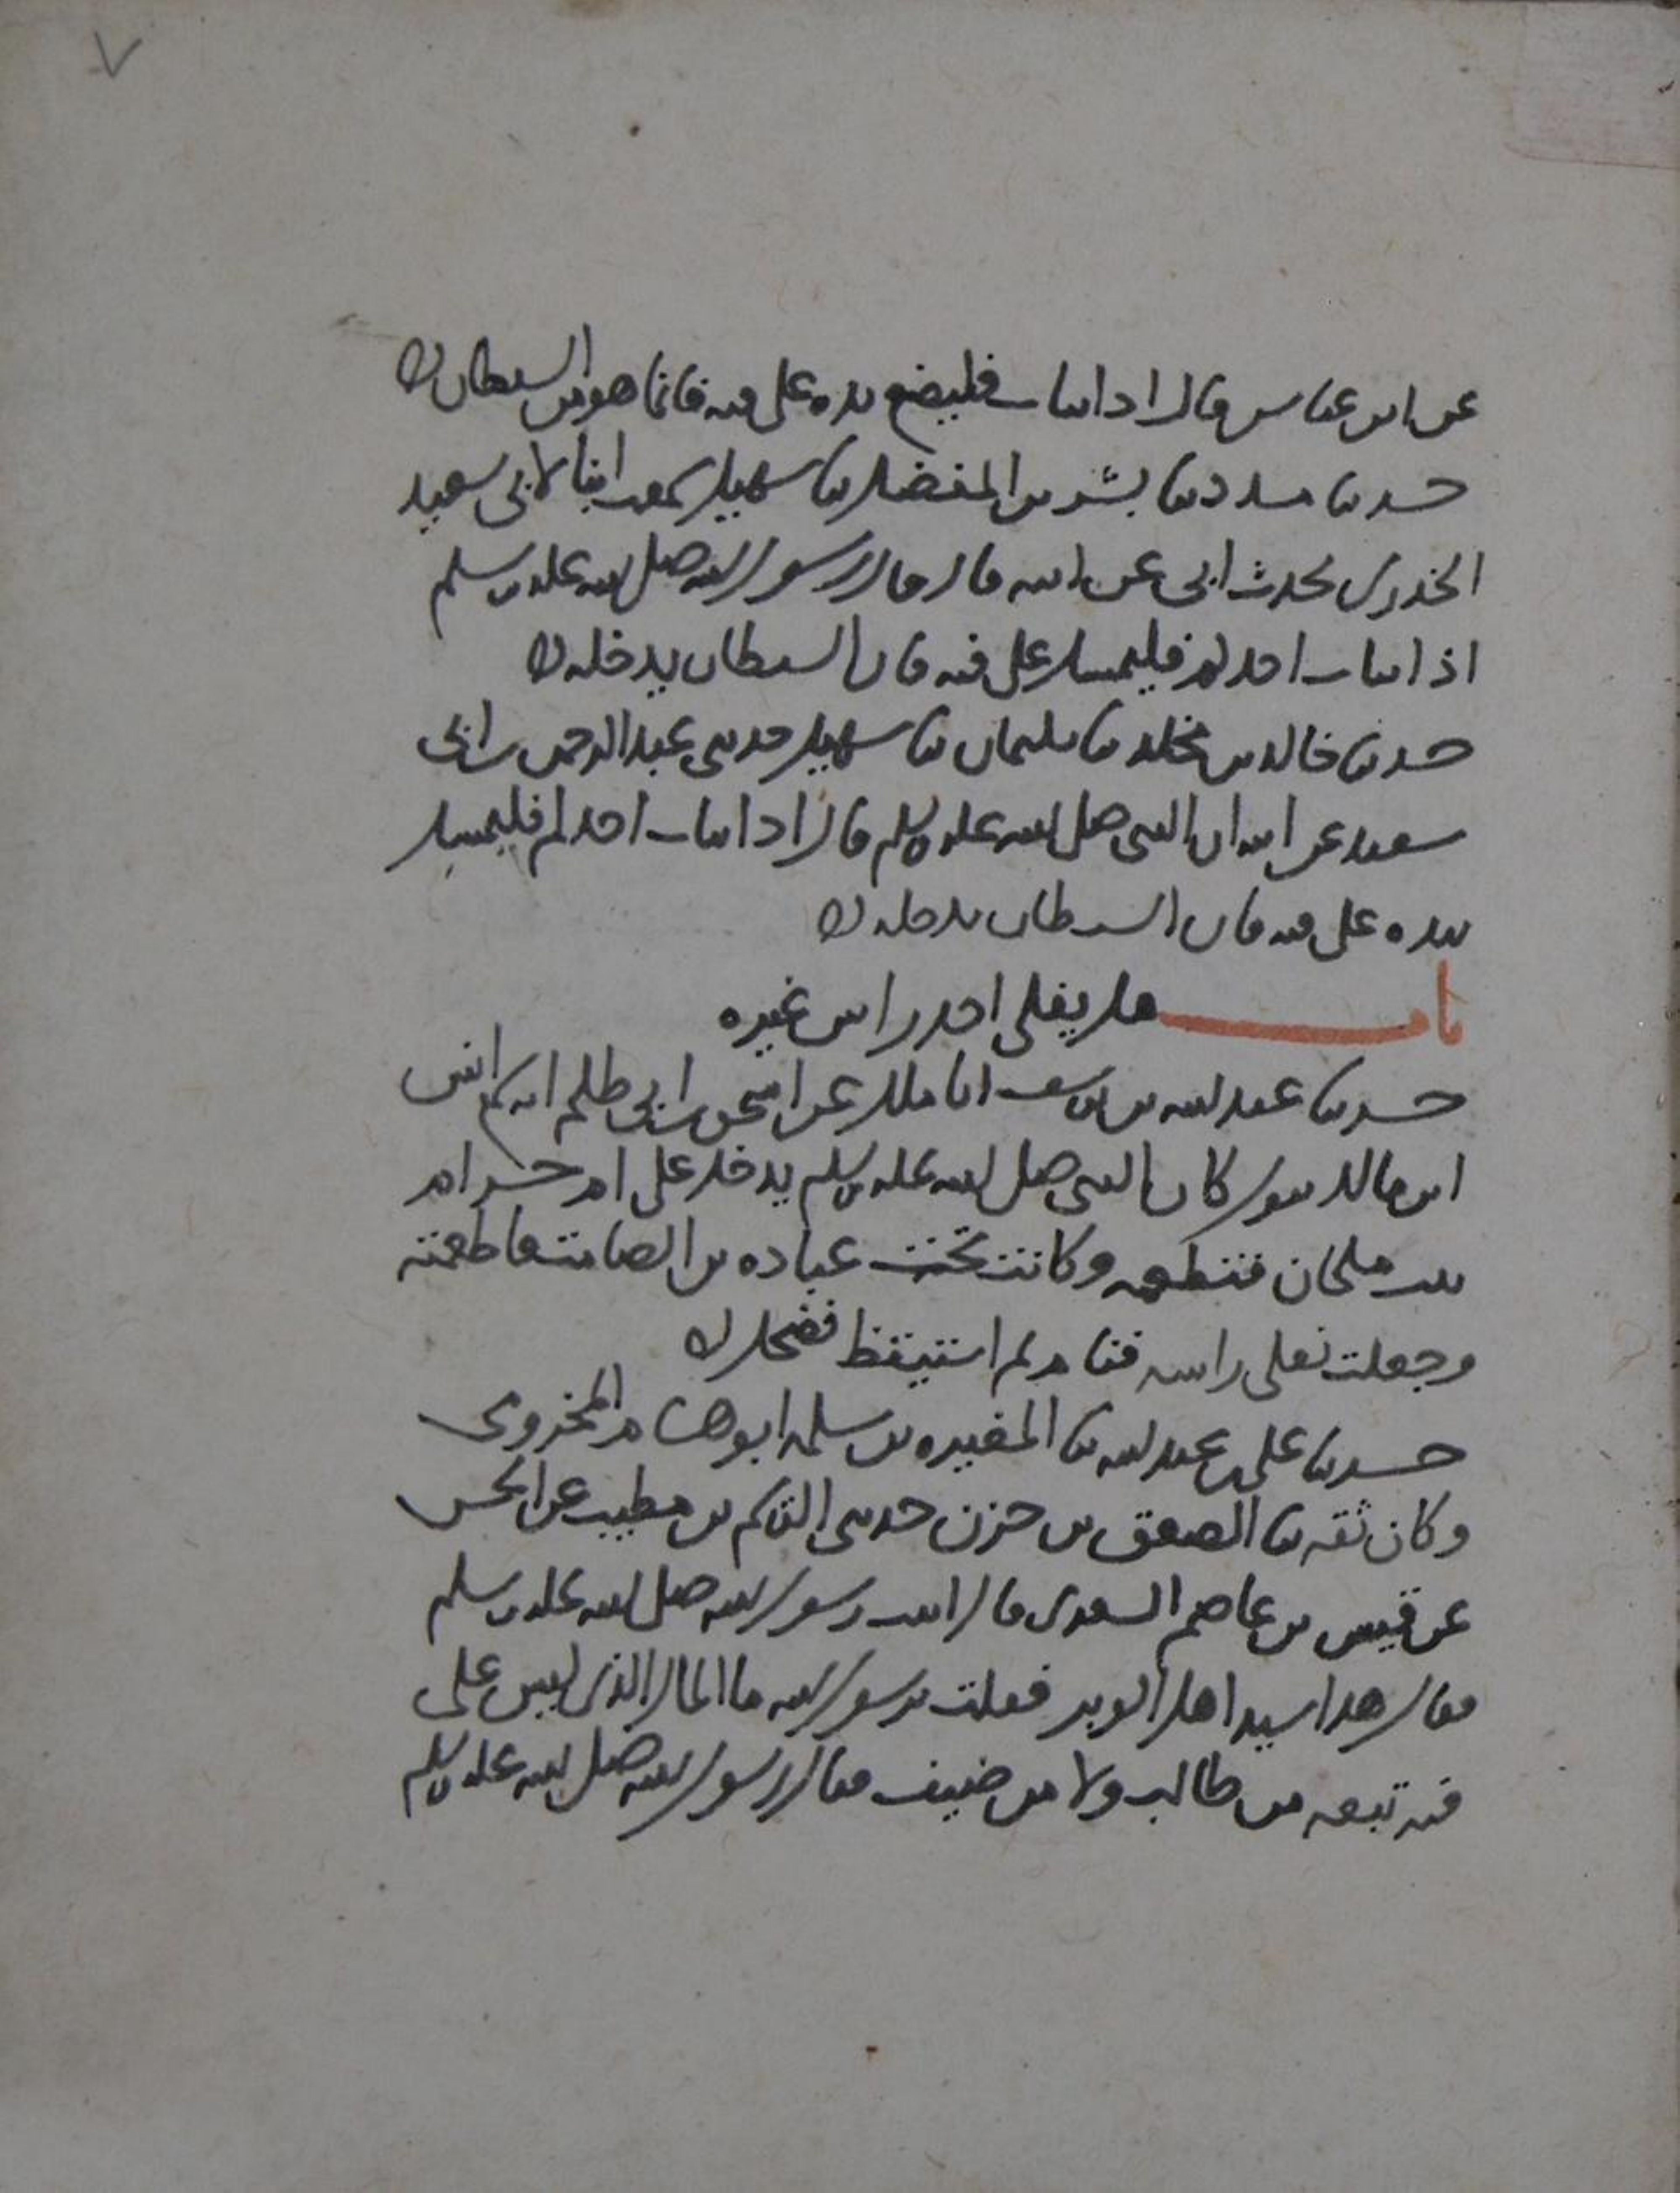 ٧
عن ابن عباس قال اذا تثاب فليضع يده على فيه فانما هو من الشيطان
حدثنا مسدد ثنا بشر بن المفضل ثنا سهيل سمعت ابنا لابي سعيد
الخدري يحدث ابي عن ابيه قال قال رسول الله صلى الله عليه وسلم
اذا تثاب احدكم فليمسك على فيه فان الشيطان يدخله
حدثنا خالد بن مخلد ثنا سليمان ثنا سهيل حدثني عبد الرحمن بن ابي
سعيد عن ابيه ان النبي صلى الله عليه وسلم قال اذا تثاب احدكم فليمسك
بيده على فيه فان الشيطان يدخله
باب هل يفلي احد راس غيره
حدثنا عبد الله بن يوسف انا ملك عن اسحق بن ابي طلحه انه سمع انس
ابن مالك يقول كان النبي صلى الله عليه وسلم يدخل على ام حرام
بنت ملحان فتطعمه وكانت تحت عباده بن الصامت فاطعمته
وجعلت تفلي راسه فنام ثم استيقظ فضحك
حدثنا علي بن عبد الله ثنا المغيره بن سلمه ابو هشام المخزومي
وكان ثقه ثنا الصعق بن حزن حدثني القسم بن مطيب عن الحسن
عن قيس بن عاصم السعدي قال اتيت رسول الله صلى الله عليه وسلم
فقال هذا سيد اهل الوبر فقلت يرسول الله ما المال الذي ليس علي
فيه تبعه من طالب ولا من ضيف فقال رسول الله صلى الله عليه وسلم